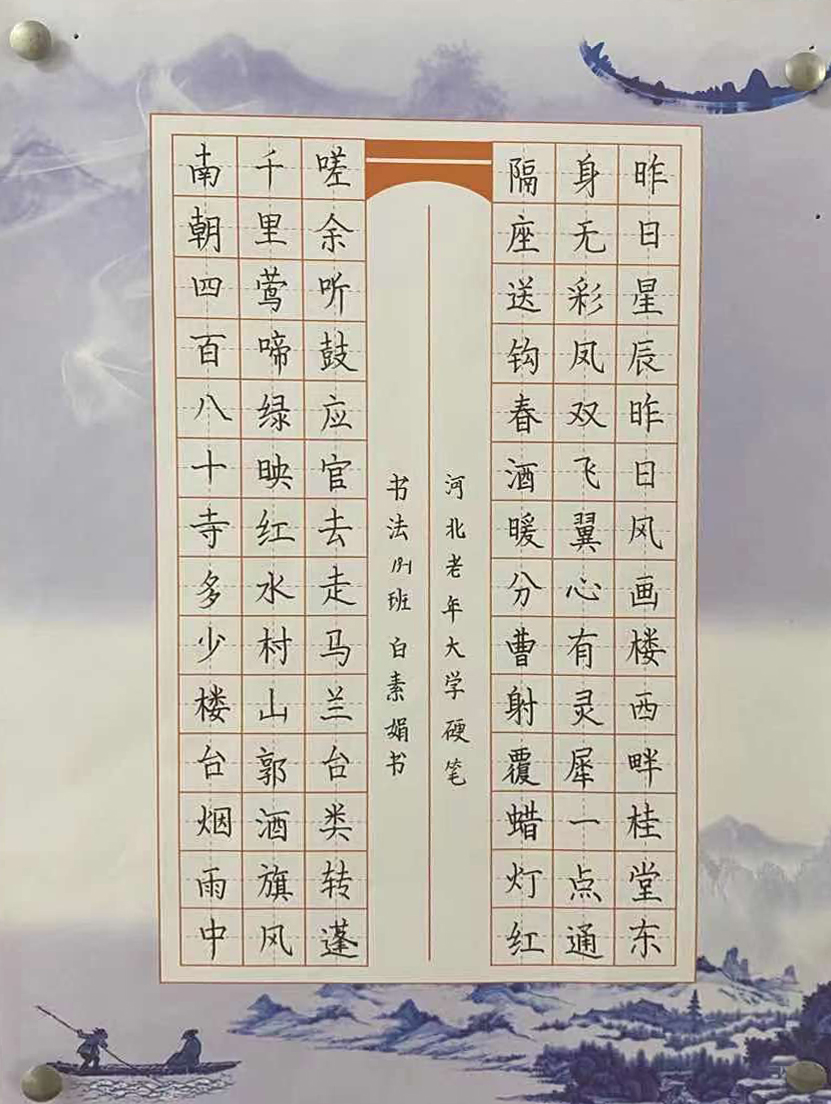 昨日星辰昨日风画楼西畔桂堂东
身无彩凤双飞翼心有灵犀一点通
隔座送钩春酒暖分曹射覆蜡灯红
河北老年大学硬笔
书法19-1班白素娟书
嗟余听鼓应官去走马兰台类转蓬
千里莺啼绿映红水村山郭酒旗风
南朝四百八十寺多少楼台烟雨中